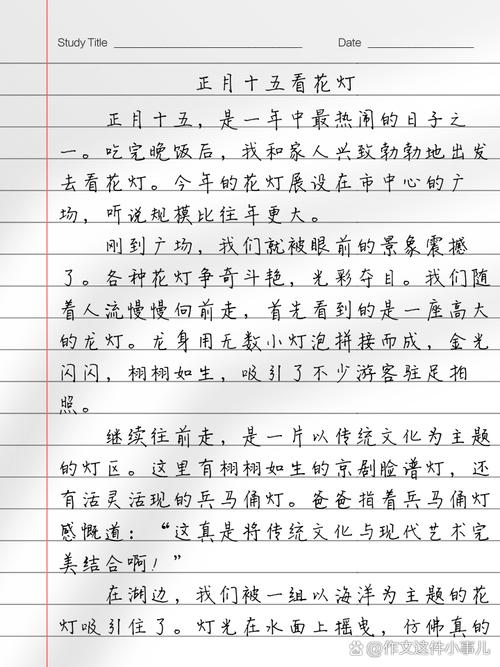 Study Title
Date
正月十五看花灯
正月十五，是一年中最热闹的日子之
一。吃完晚饭后，我和家人兴致勃勃地出发
去看花灯。今年的花灯展设在市中心的广
场，听说规模比往年更大。
刚到广场，我们就被眼前的景象震撼
了。各种花灯争奇斗艳，光彩夺目。我们随
着人流慢慢向前走，首先看到的是一座高大
的龙灯。龙身用无数小灯泡拼接而成，金光
闪闪，栩栩如生，吸引了不少游客驻足拍
照。
继续往前走，是一片以传统文化为主题
的灯区。这里有栩栩如生的京剧脸谱灯，还
有活灵活现的兵马俑灯。爸爸指着兵马俑灯
感慨道：“这真是将传统文化与现代艺术完
美结合啊！”
在湖边，我们被一组以海洋为主题的花
灯吸引住了。灯光在水面上摇曳，仿佛真的
@作文这件小事儿